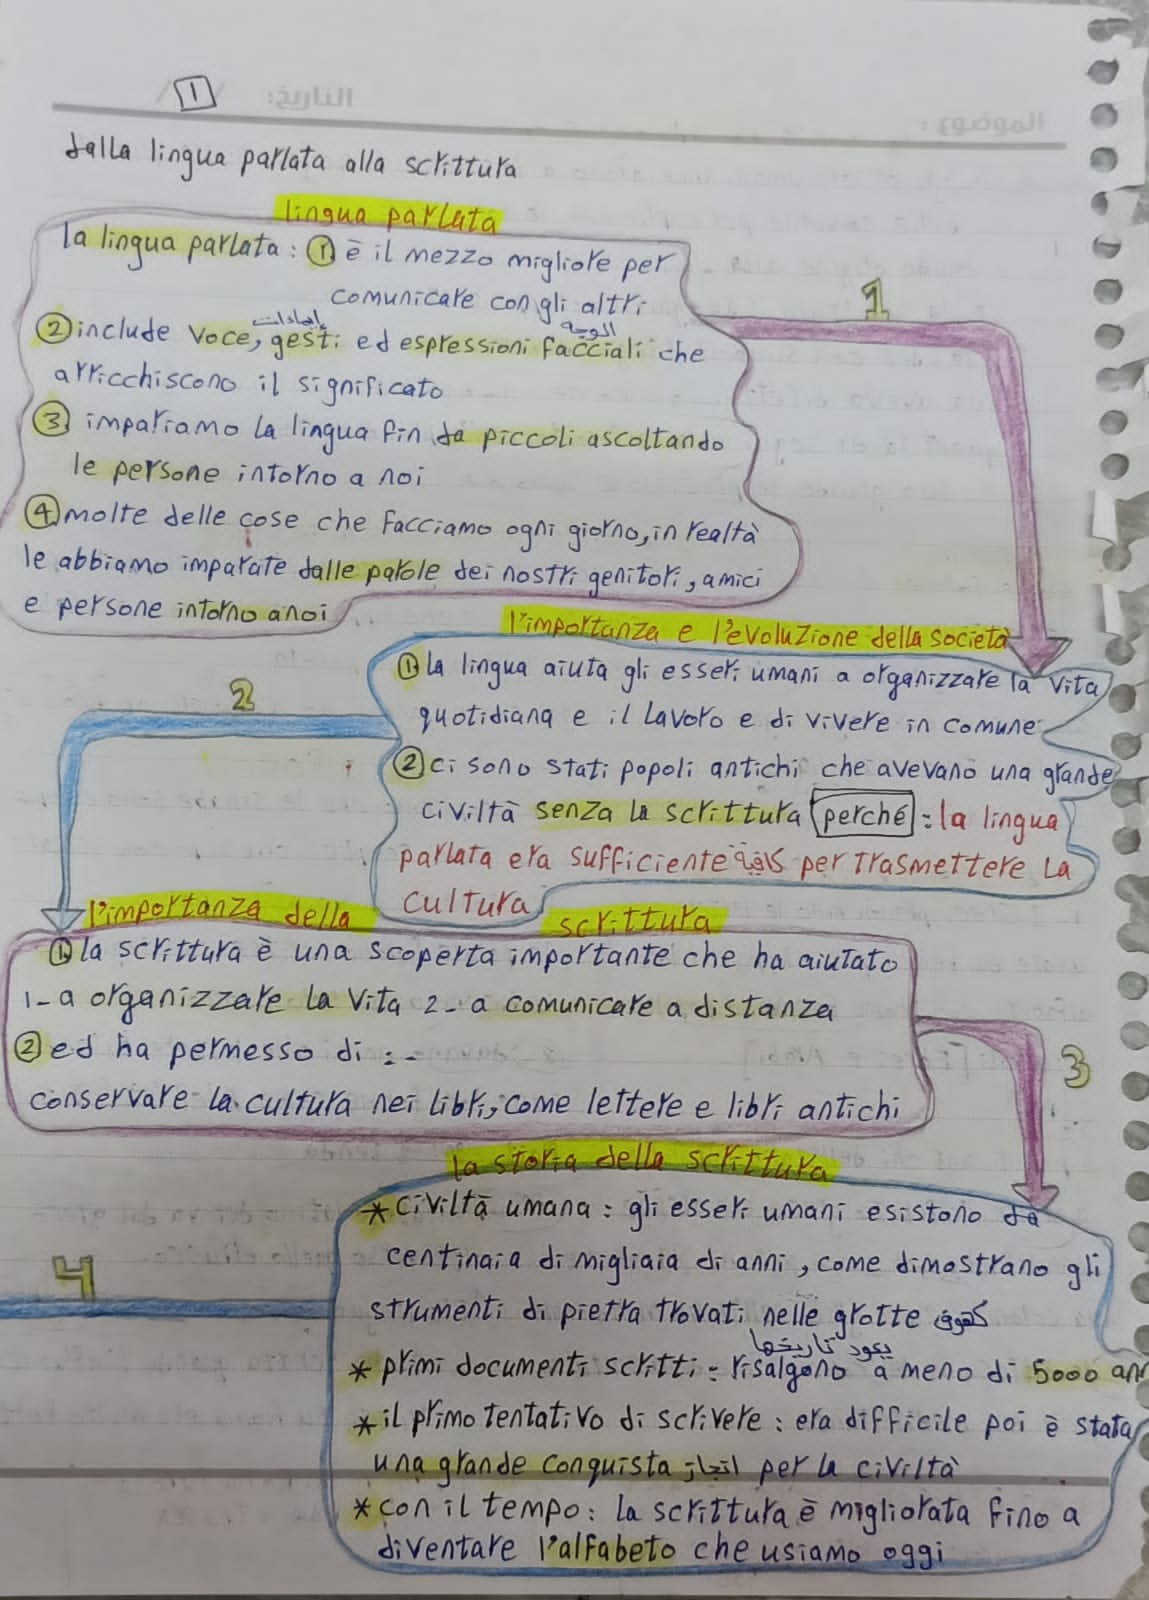 1
التاريخ:
الموضوع:
dalla lingua parlata alla scrittura
lingua parlata
la lingua parlata: ① è il mezzo migliore per
comunicare con gli altri
② include voce, gesti إيماءات ed espressioni facciali الوجه che
arricchiscono il significato
③ impariamo la lingua fin da piccoli ascoltando
le persone intorno a noi
④ molte delle cose che facciamo ogni giorno, in realtà
le abbiamo imparate dalle parole dei nostri genitori, amici
e persone intorno a noi
1
l'importanza e l'evoluzione della società
① la lingua aiuta gli esseri umani a organizzare la vita
quotidiana e il lavoro e di vivere in comune
② ci sono stati popoli antichi che avevano una grande
civiltà senza la scrittura perché: la lingua
parlata era sufficiente كافية per trasmettere la
cultura
2
l'importanza della scrittura
① la scrittura è una scoperta importante che ha aiutato
1- a organizzare la vita 2- a comunicare a distanza
② ed ha permesso di :-
conservare la cultura nei libri, come lettere e libri antichi
3
la storia della scrittura
* civiltà umana: gli esseri umani esistono da
centinaia di migliaia di anni, come dimostrano gli
strumenti di pietra trovati nelle grotte كهوف
يعود تاريخها
* primi documenti scritti: risalgono a meno di 5000 an
* il primo tentativo di scrivere: era difficile poi è stata
una grande conquista انجاز per la civiltà
* con il tempo: la scrittura è migliorata fino a
diventare l'alfabeto che usiamo oggi
4